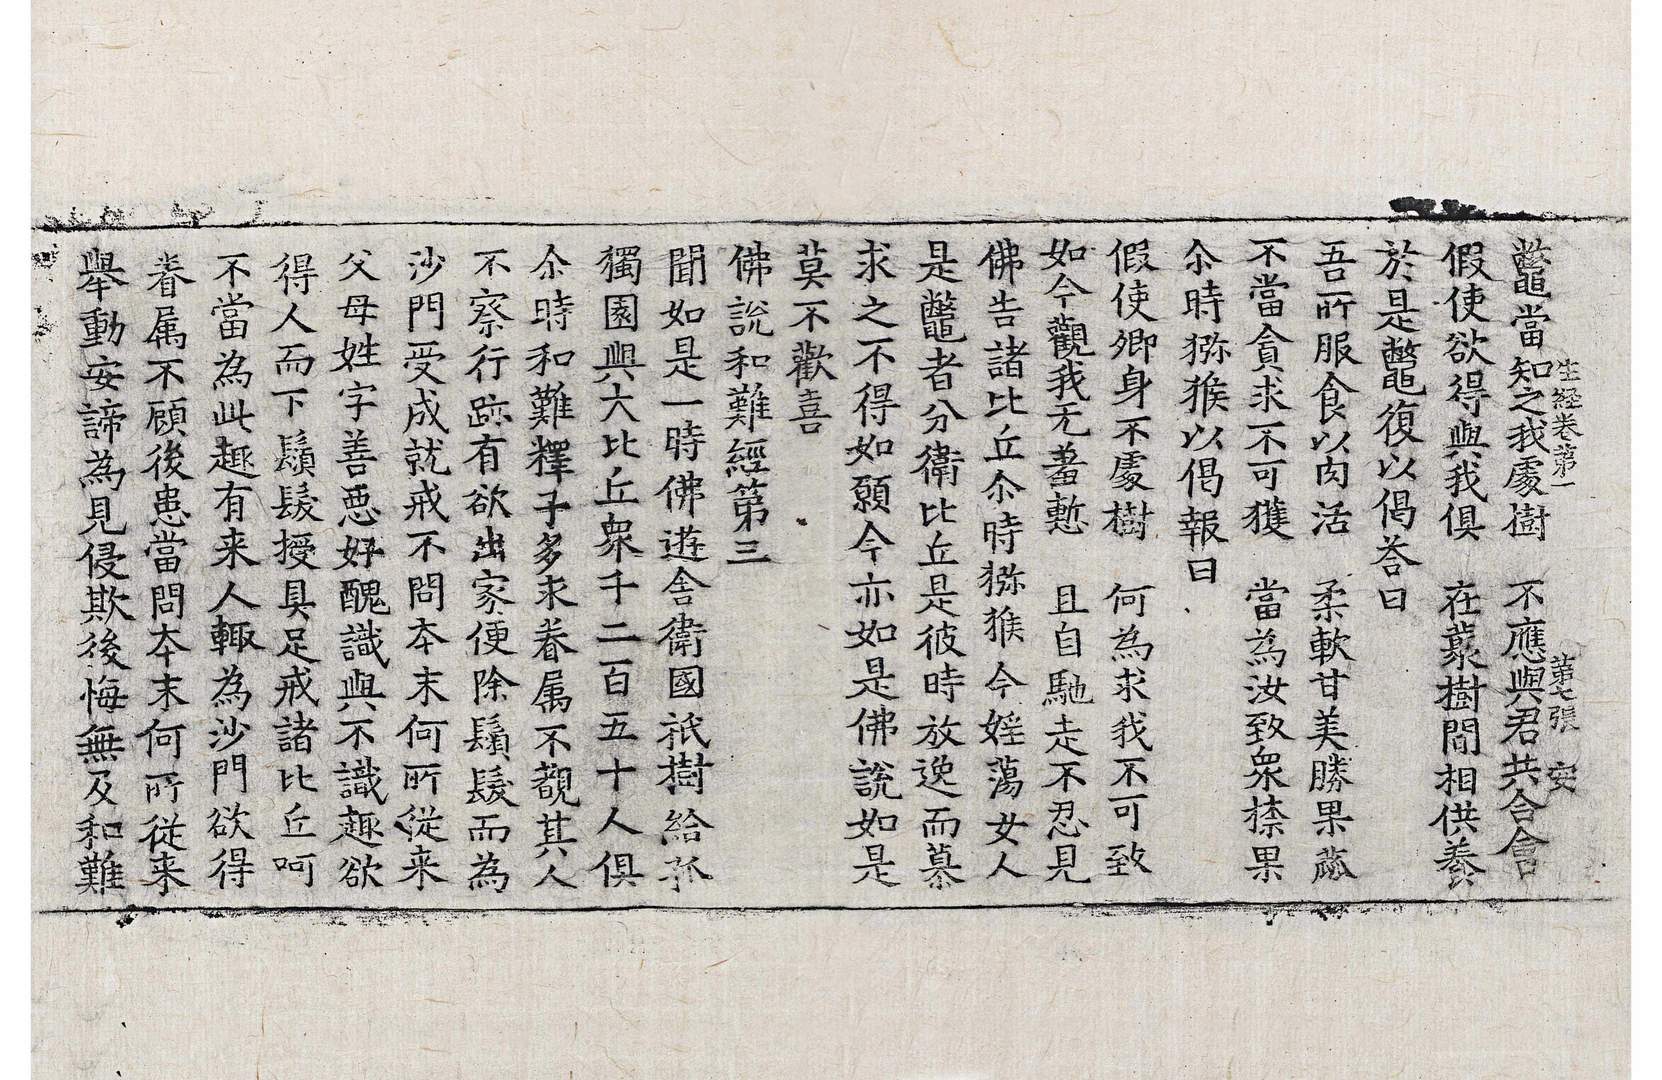 生経卷第一 第七張 安
鼈當知之我䖏樹 不應與君共合會
假使欲得與我俱 在藂樹間相供養
於是鼈復以偈荅曰
吾所服食以肉活 柔軟甘美勝果蓏
不當貪求不可獲 當為汝致衆㮈果
尒時猕猴以偈報曰
假使卿身不䖏樹 何為求我不可致
如今觀我无羞慙 且自馳走不忍見
佛告諸比丘尒時猕猴今婬蕩女人
是鼈者分衛比丘是彼時放逸而慕
求之不得如願今亦如是佛說如是
莫不歡喜
佛說和難經第三
聞如是一時佛遊舎衛國祇樹給孤
獨園與大比丘衆千二百五十人俱
尒時和難釋子多求眷属不觀其人
不察行跡有欲出家便除鬚髮而為
沙門受成就戒不問本末何所従来
父母姓字善惡好醜識與不識趣欲
得人而下鬚髮授具足戒諸比丘呵
不當為此趣有来人輙為沙門欲得
眷属不顧後患當問本末何所従来
舉動安諦為見侵欺後悔無及和難